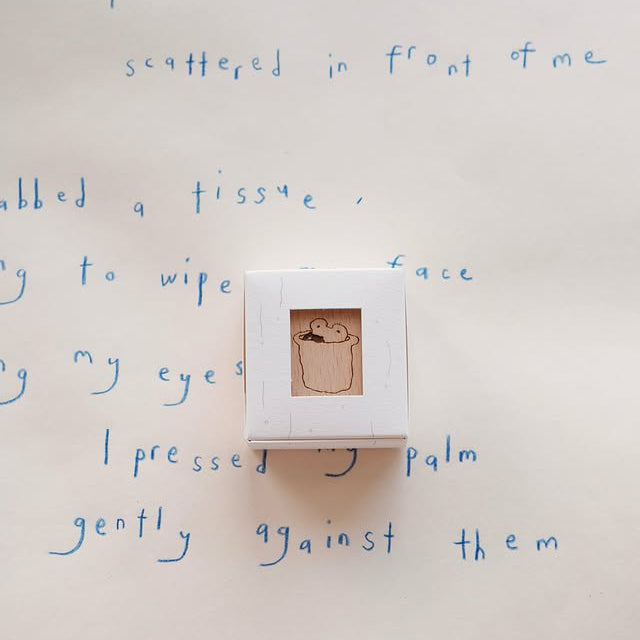 scattered in front of me
a tissue,
to wipe face
my eyes
I pressed my palm
gently against them